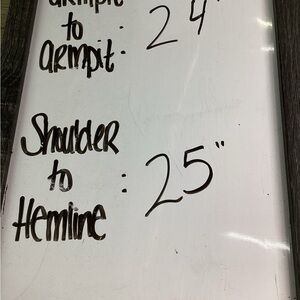 armpit
to : 24"
armpit
Shoulder
to : 25"
Hemline